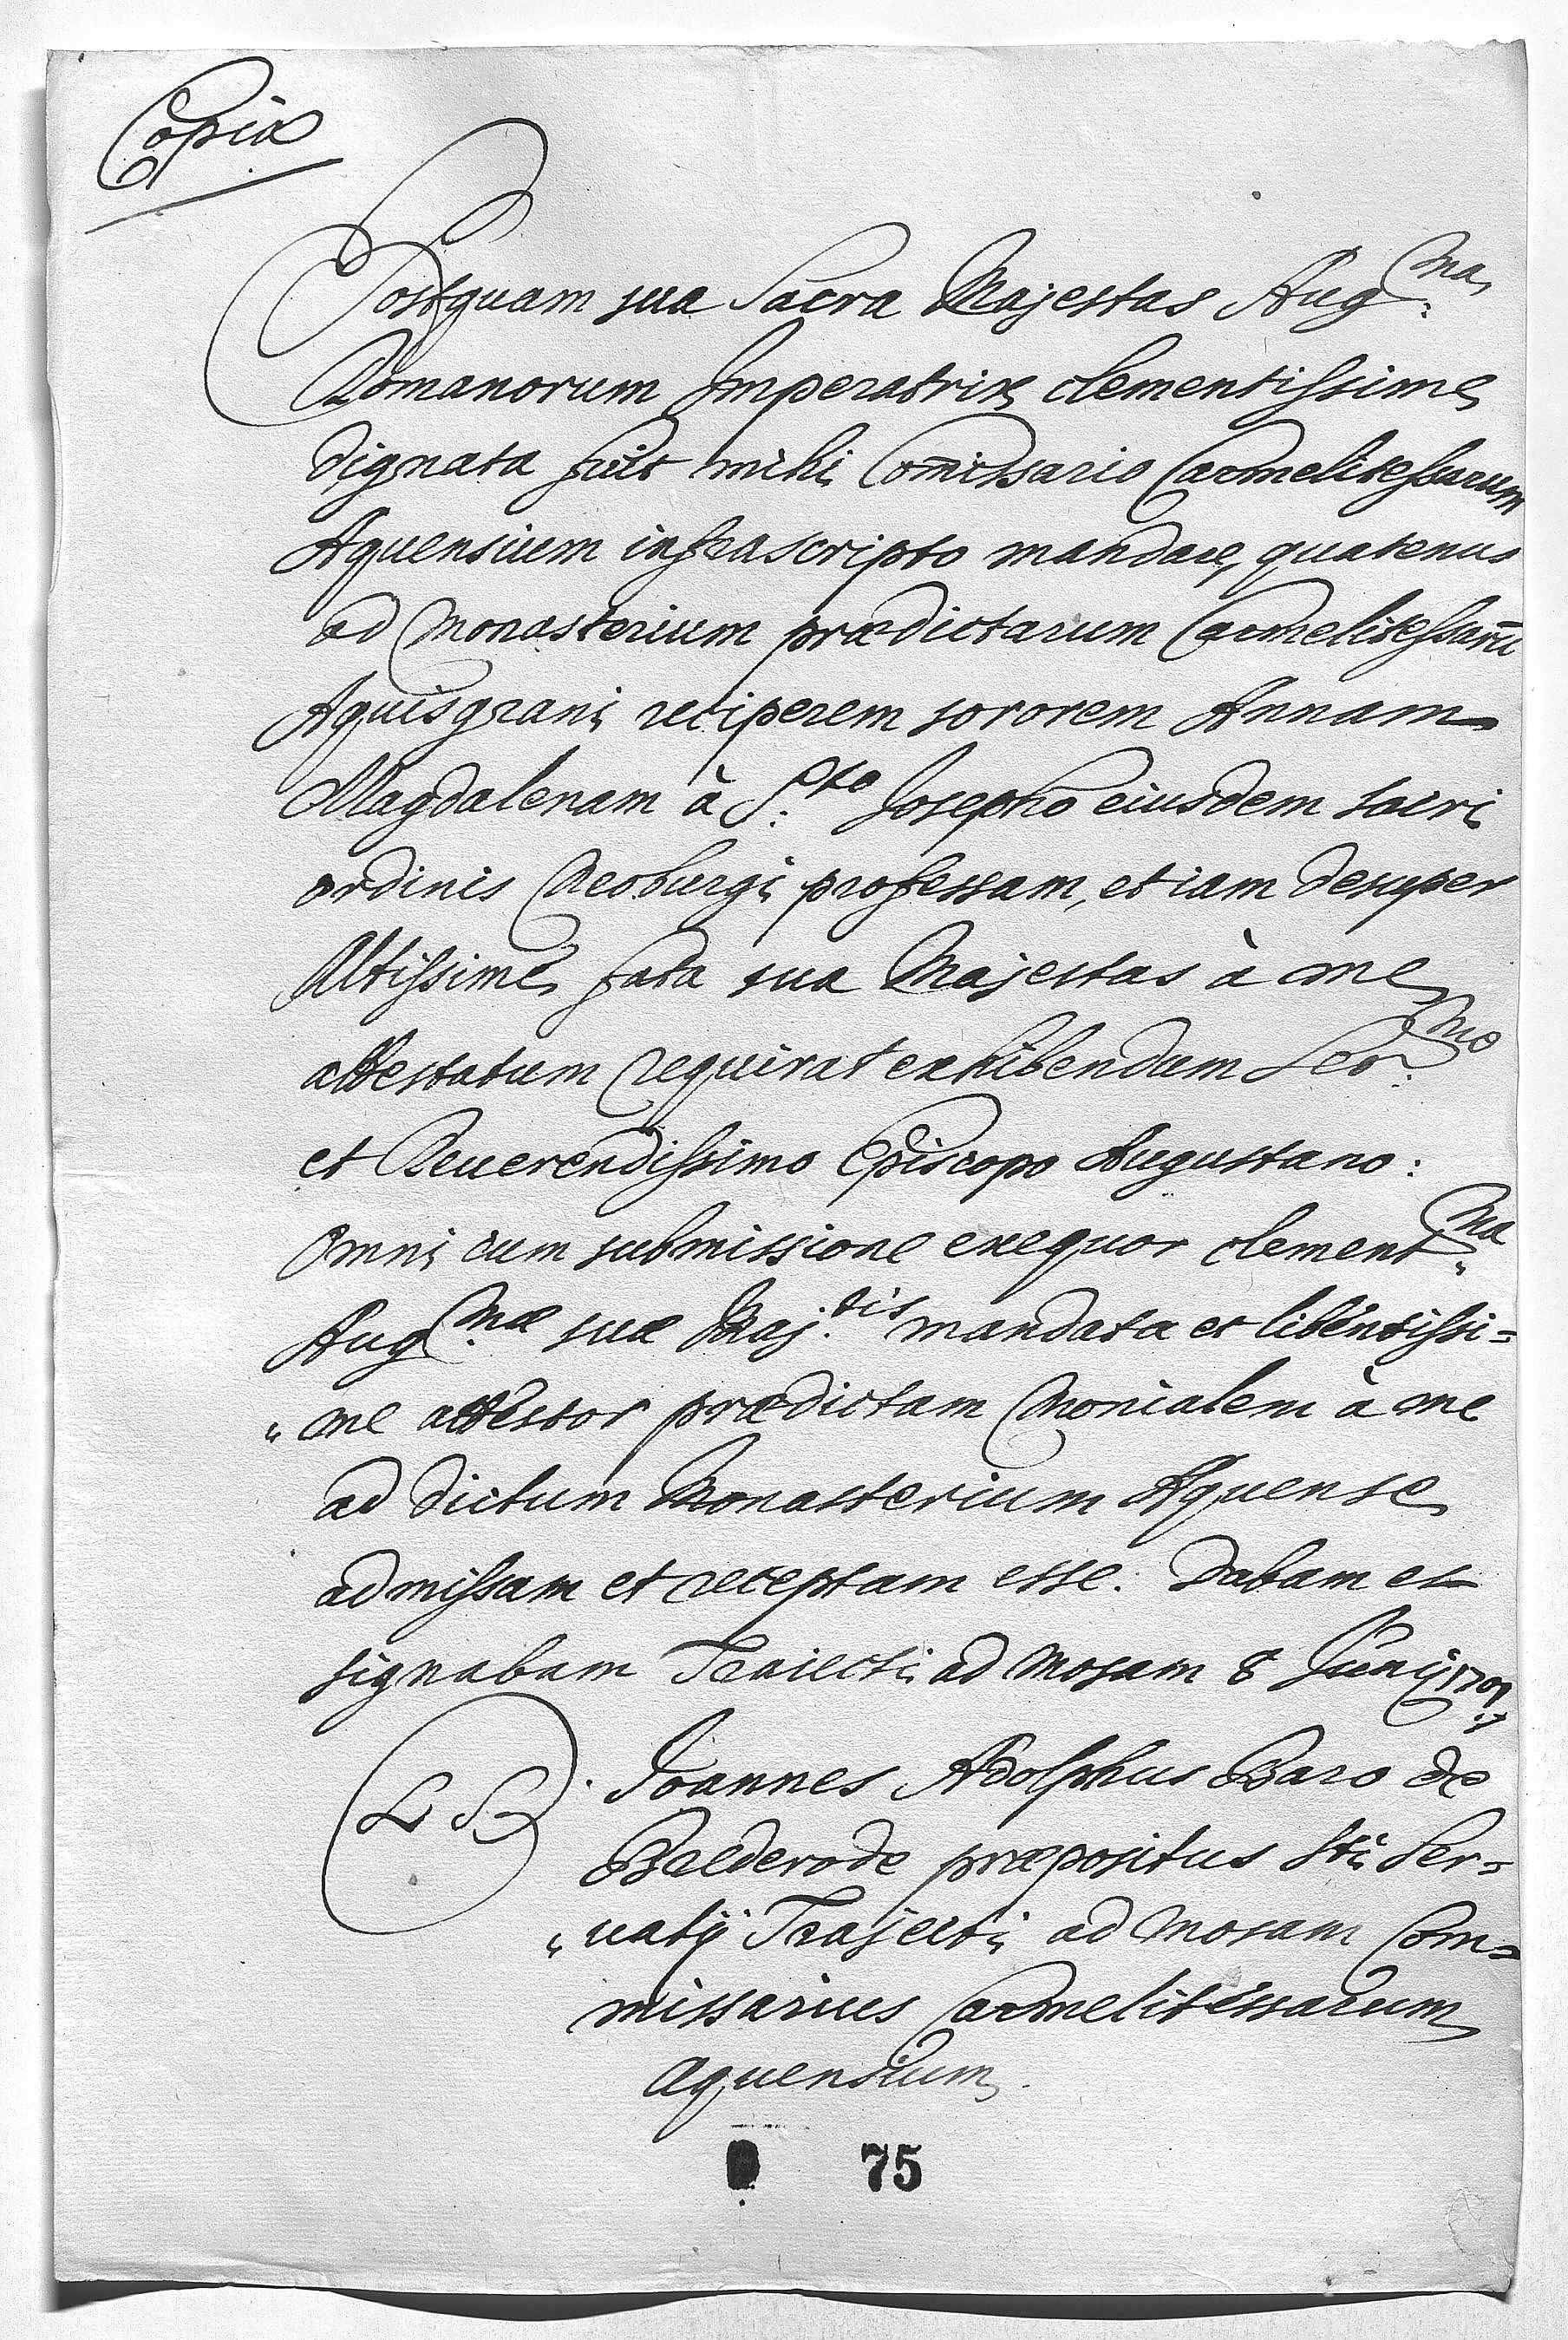 Copia
Postquam sua Sacra Majestas Aug:ma
Romanorum Imperatrix clementissime
dignata fuit mihi Com̄issario Carmelitessarum
Aquensium infrascripto mandare, quatenus
ad Monasterium prædictarum Carmelitessarū
Aquisgrani reciperem sororem Annam
Magdalenam à S:to Josepho eiusdem sacri
ordinis Neoburgi professam, et iam desuper
Altissime fata sua Majestas à me
attestatum requirat exhibendum Ser:mo
et Reuerendissimo Episcopo Augustano:
omni cum submissione exequor clement:ma
Aug:mæ suæ Maj:tis mandata et libentissi=
"me attestor prædictam Monialem à me
ad dictum Monasterium Aquense
admissam et receptam esse. Dabam et
signabam Traiecti ad Mosam 8 Junij
L S Joannes Adolphus Baro de
præpositus Sti Ser=
"uatij Trajecti ad Mosam Com=
missarius Carmelitessarum
Aquensium
75